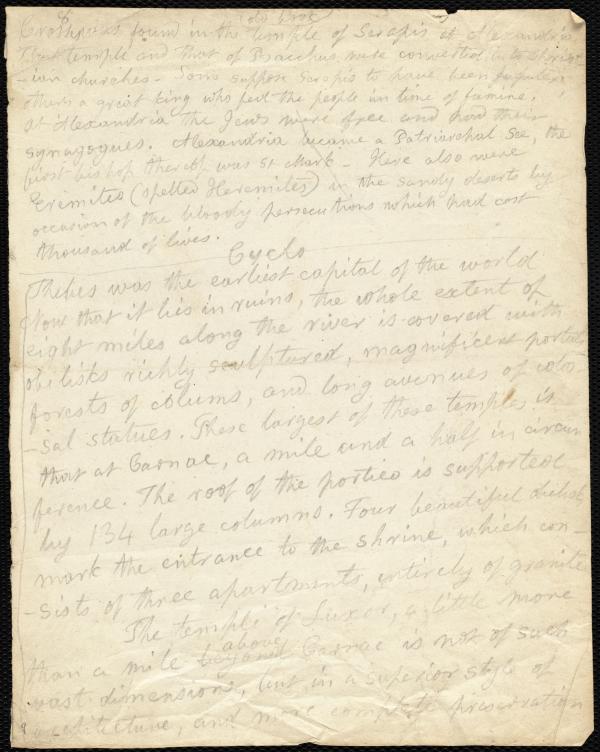 (old book
Cross was found in the temple of Serapis at Alexandria
That temple and that of Bacchus were converted into Christ-
-ian churches - Some suppose Serapis to have been Jupiter
others a great king who fed the people in time of famine.
At Alexandria the Jews were free and had their
synagogues. Alexandria became a Patriarchal See, the
first bishop thereof was St Mark - Here also were
Eremites (spelled Heremites) in the sandy deserts by
occasion of the bloody persecutions which had cost
thousand of lives.
Cyclo
Thebes was the earliest capital of the world
Now that it lies in ruins, the whole extent of
eight miles along the river is covered with
obelisks richly sculptured, magnificent portals
forests of colums, and long avenues of colos
-sal statues. These largest of these temples is
that at Carnac, a mile and a half in circum
ference. The roof of the portico is supported
by 134 large columns. Four beautiful obelisks
mark the entrance to the shrine, which con-
-sists of three apartments, entirely of granite
The temple of Luxor, a little more
above
than a mile beyond Carnac is not of such
vast dimensions, but in a superior style of
architecture, and more complete preservation